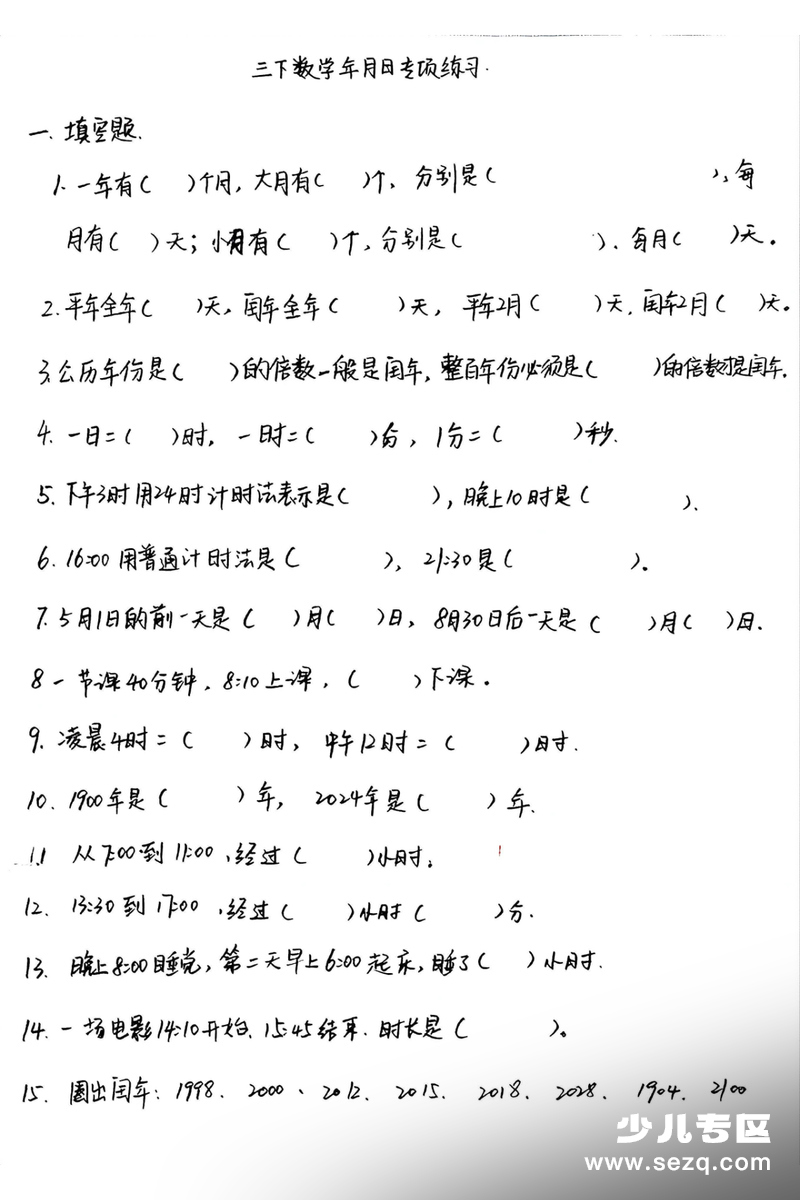 三下数学年月日专项练习.
一. 填空题.
1. 一年有( )个月, 大月有( )个, 分别是( ), 每
月有( )天; 小月有( )个, 分别是( ). 每月( )天。
2. 平年全年( )天, 闰年全年( )天, 平年2月( )天, 闰年2月( )天。
3. 公历年份是( )的倍数一般是闰年, 整百年份必须是( )的倍数才是闰年.
4. 一日=( )时, 一时=( )分, 1分=( )秒.
5. 下午3时用24时计时法表示是( ), 晚上10时是( ).
6. 16:00用普通计时法是( ), 21:30是( )。
7. 5月1日的前一天是( )月( )日, 8月30日后一天是( )月( )日.
8 一节课40分钟, 8:10上课, ( )下课。
9. 凌晨4时=( )时, 中午12时=( )时.
10. 1900年是( )年, 2024年是( )年.
11 从7:00到11:00,经过( )小时.
12. 13:30到17:00,经过( )小时( )分.
13. 晚上8:00睡觉, 第二天早上6:00起床, 睡了( )小时.
14. 一场电影14:10开始. 15:45结束. 时长是( )。
15. 圈出闰年: 1998、2000、2012、2015、2018、2028、1904、2100
少儿专区
www.sezq.com